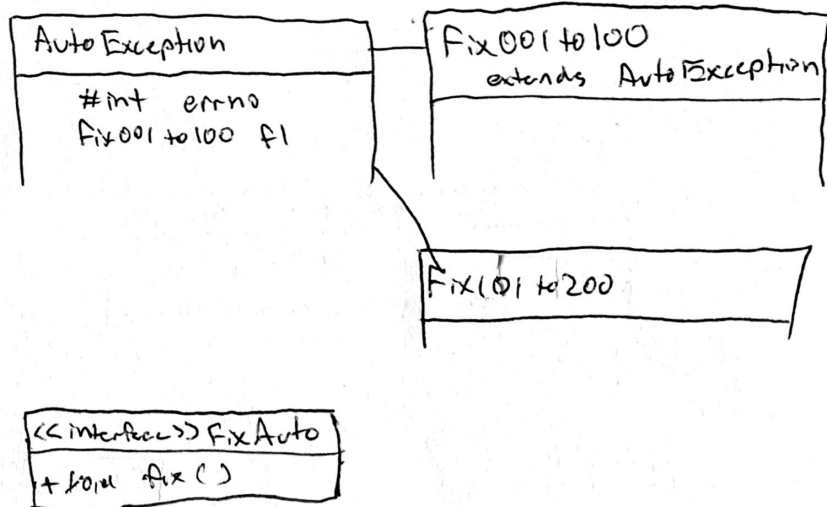 AutoException
#int errno
Fix001to100 f1
Fix001to100
extends AutoException
Fix101to200
<<interface>> FixAuto
+ void fix()